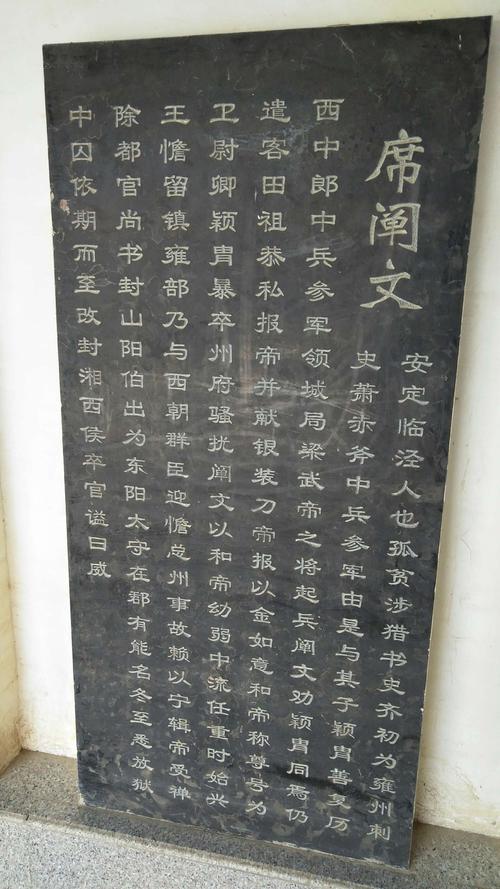 席阐文
安定临泾人也孤贫涉猎书史齐初为雍州刺
史萧赤斧中兵参军由是与其子颖胄善复历
西中郎中兵参军领城局梁武帝之将起兵阐文劝颖胄同焉仍
遣客田祖恭私报帝并献银装刀帝报以金如意和帝称尊号为
卫尉卿颖胄暴卒州府骚扰阐文以和帝幼弱中流任重时始兴
王憺留镇雍部乃与西朝群臣迎憺总州事故赖以宁辑帝受禅
除都官尚书封山阳伯出为东阳太守在郡有能名冬至悉放狱
中囚依期而至改封湘西侯卒官谥曰威